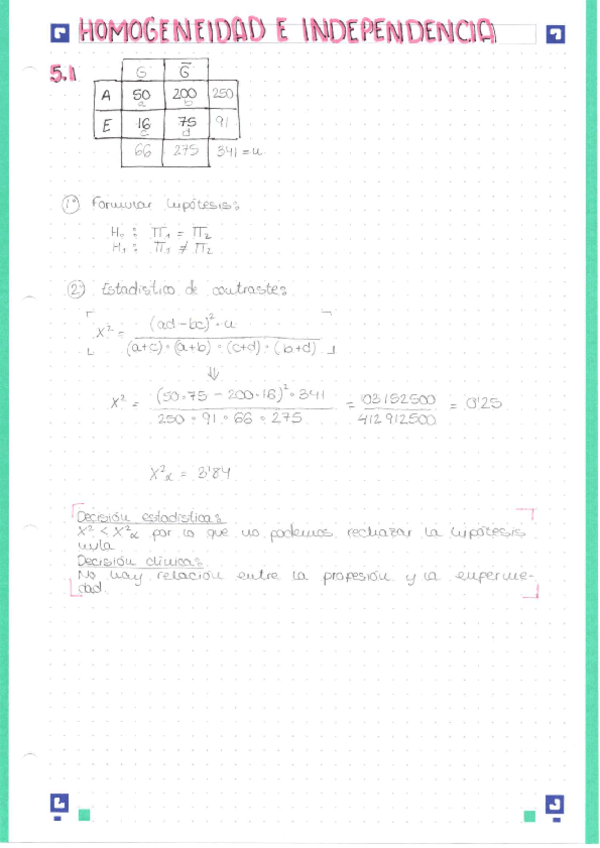 HOMOGENEIDAD E INDEPENDENCIA
5.1
G G̅
A 50 200 250
a b
E 16 75 91
c d
66 275 341 = n
1º Formular hipótesis:
H₀ : π₁ = π₂
H₁ : π₁ ≠ π₂
2º Estadístico de contrastes
X² = (ad-bc)² · n / (a+c) · (a+b) · (c+d) · (b+d)
⇓
X² = (50·75 - 200·16)² · 341 / 250 · 91 · 66 · 275 = 103152500 / 412912500 = 0'25
X²α = 3'84
Decisión estadística:
X² < X²α por lo que no podemos rechazar la hipótesis
nula.
Decisión clínica:
No hay relación entre la profesión y la enferme-
dad.